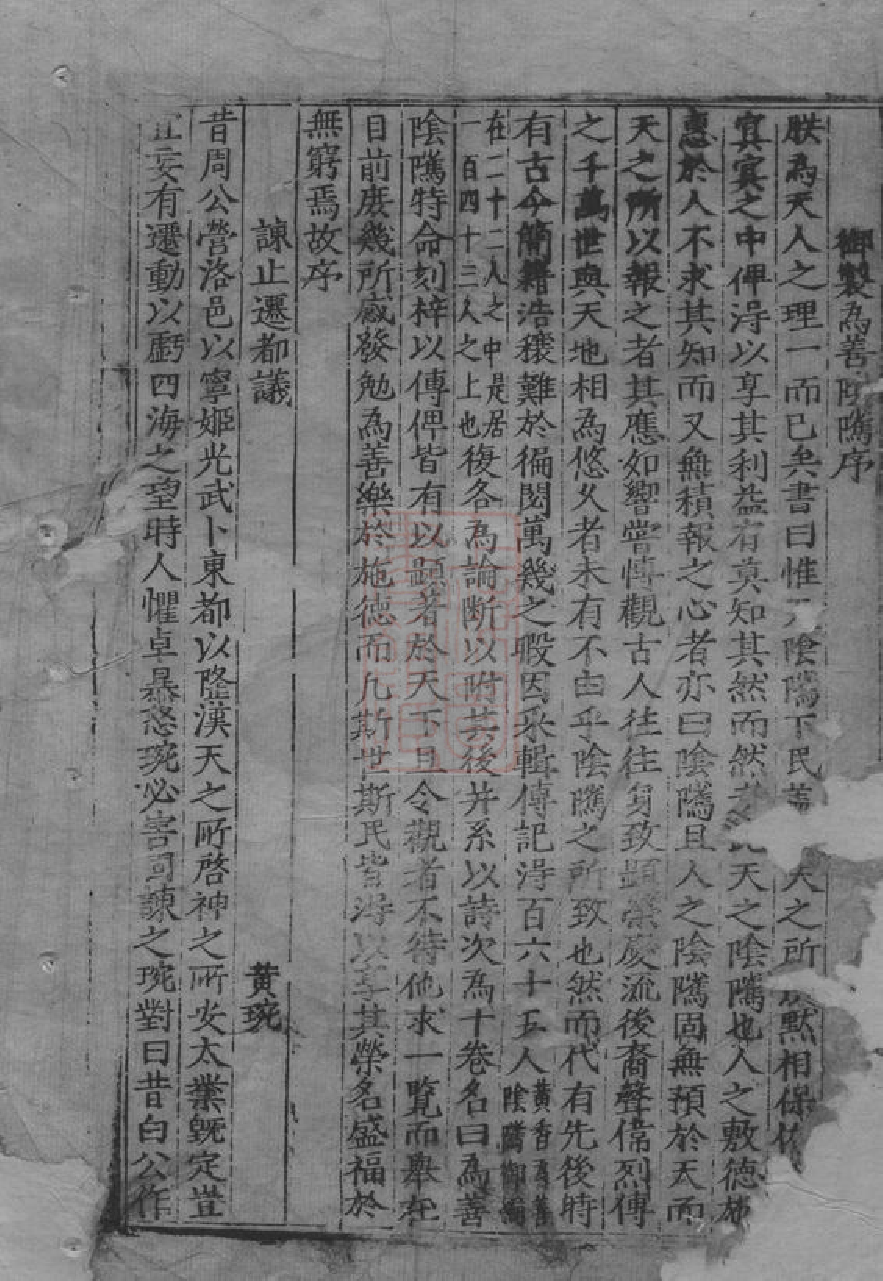 御製為善陰隲序
朕為天人之理一而已矣書曰惟天陰隲下民蓋天之所默相保
冥冥之中俾淂以享其利益有莫知其然而然者此天之陰隲也人之敷德施
惠於人不求其知而又無積報之心者亦曰陰隲且人之陰隲固無預於天而
天之所以報之者其應如響嘗愽觀古人往往身致顕榮慶流後裔聲偉烈傳
之千萬世與天地相為悠久者未有不由乎陰隲之所致也然而代有先後時
有古今簡籍浩穰難於徧閱萬幾之暇因采輯傳記淂百六十五人黃香為善陰隲御編
在二十二人之中是居一百四十三人之上也復各為論断以附其後并系以詩次為十卷名曰為善
陰隲特命刻梓以傳俾皆有以顕著於天下且令觀者不待他求一覧而舉在
目前庶幾所感發勉為善樂於施德而凡斯世斯民皆淂以享其榮名盛福於
無窮焉故序
諫止遷都議 黃琬
昔周公營洛邑以寧姬光武卜東都以隆漢天之所啓神之所安大業既定豈
宜妄有遷動以虧四海之望時人懼卓暴怒琬必害固諫之琬對曰昔白公作